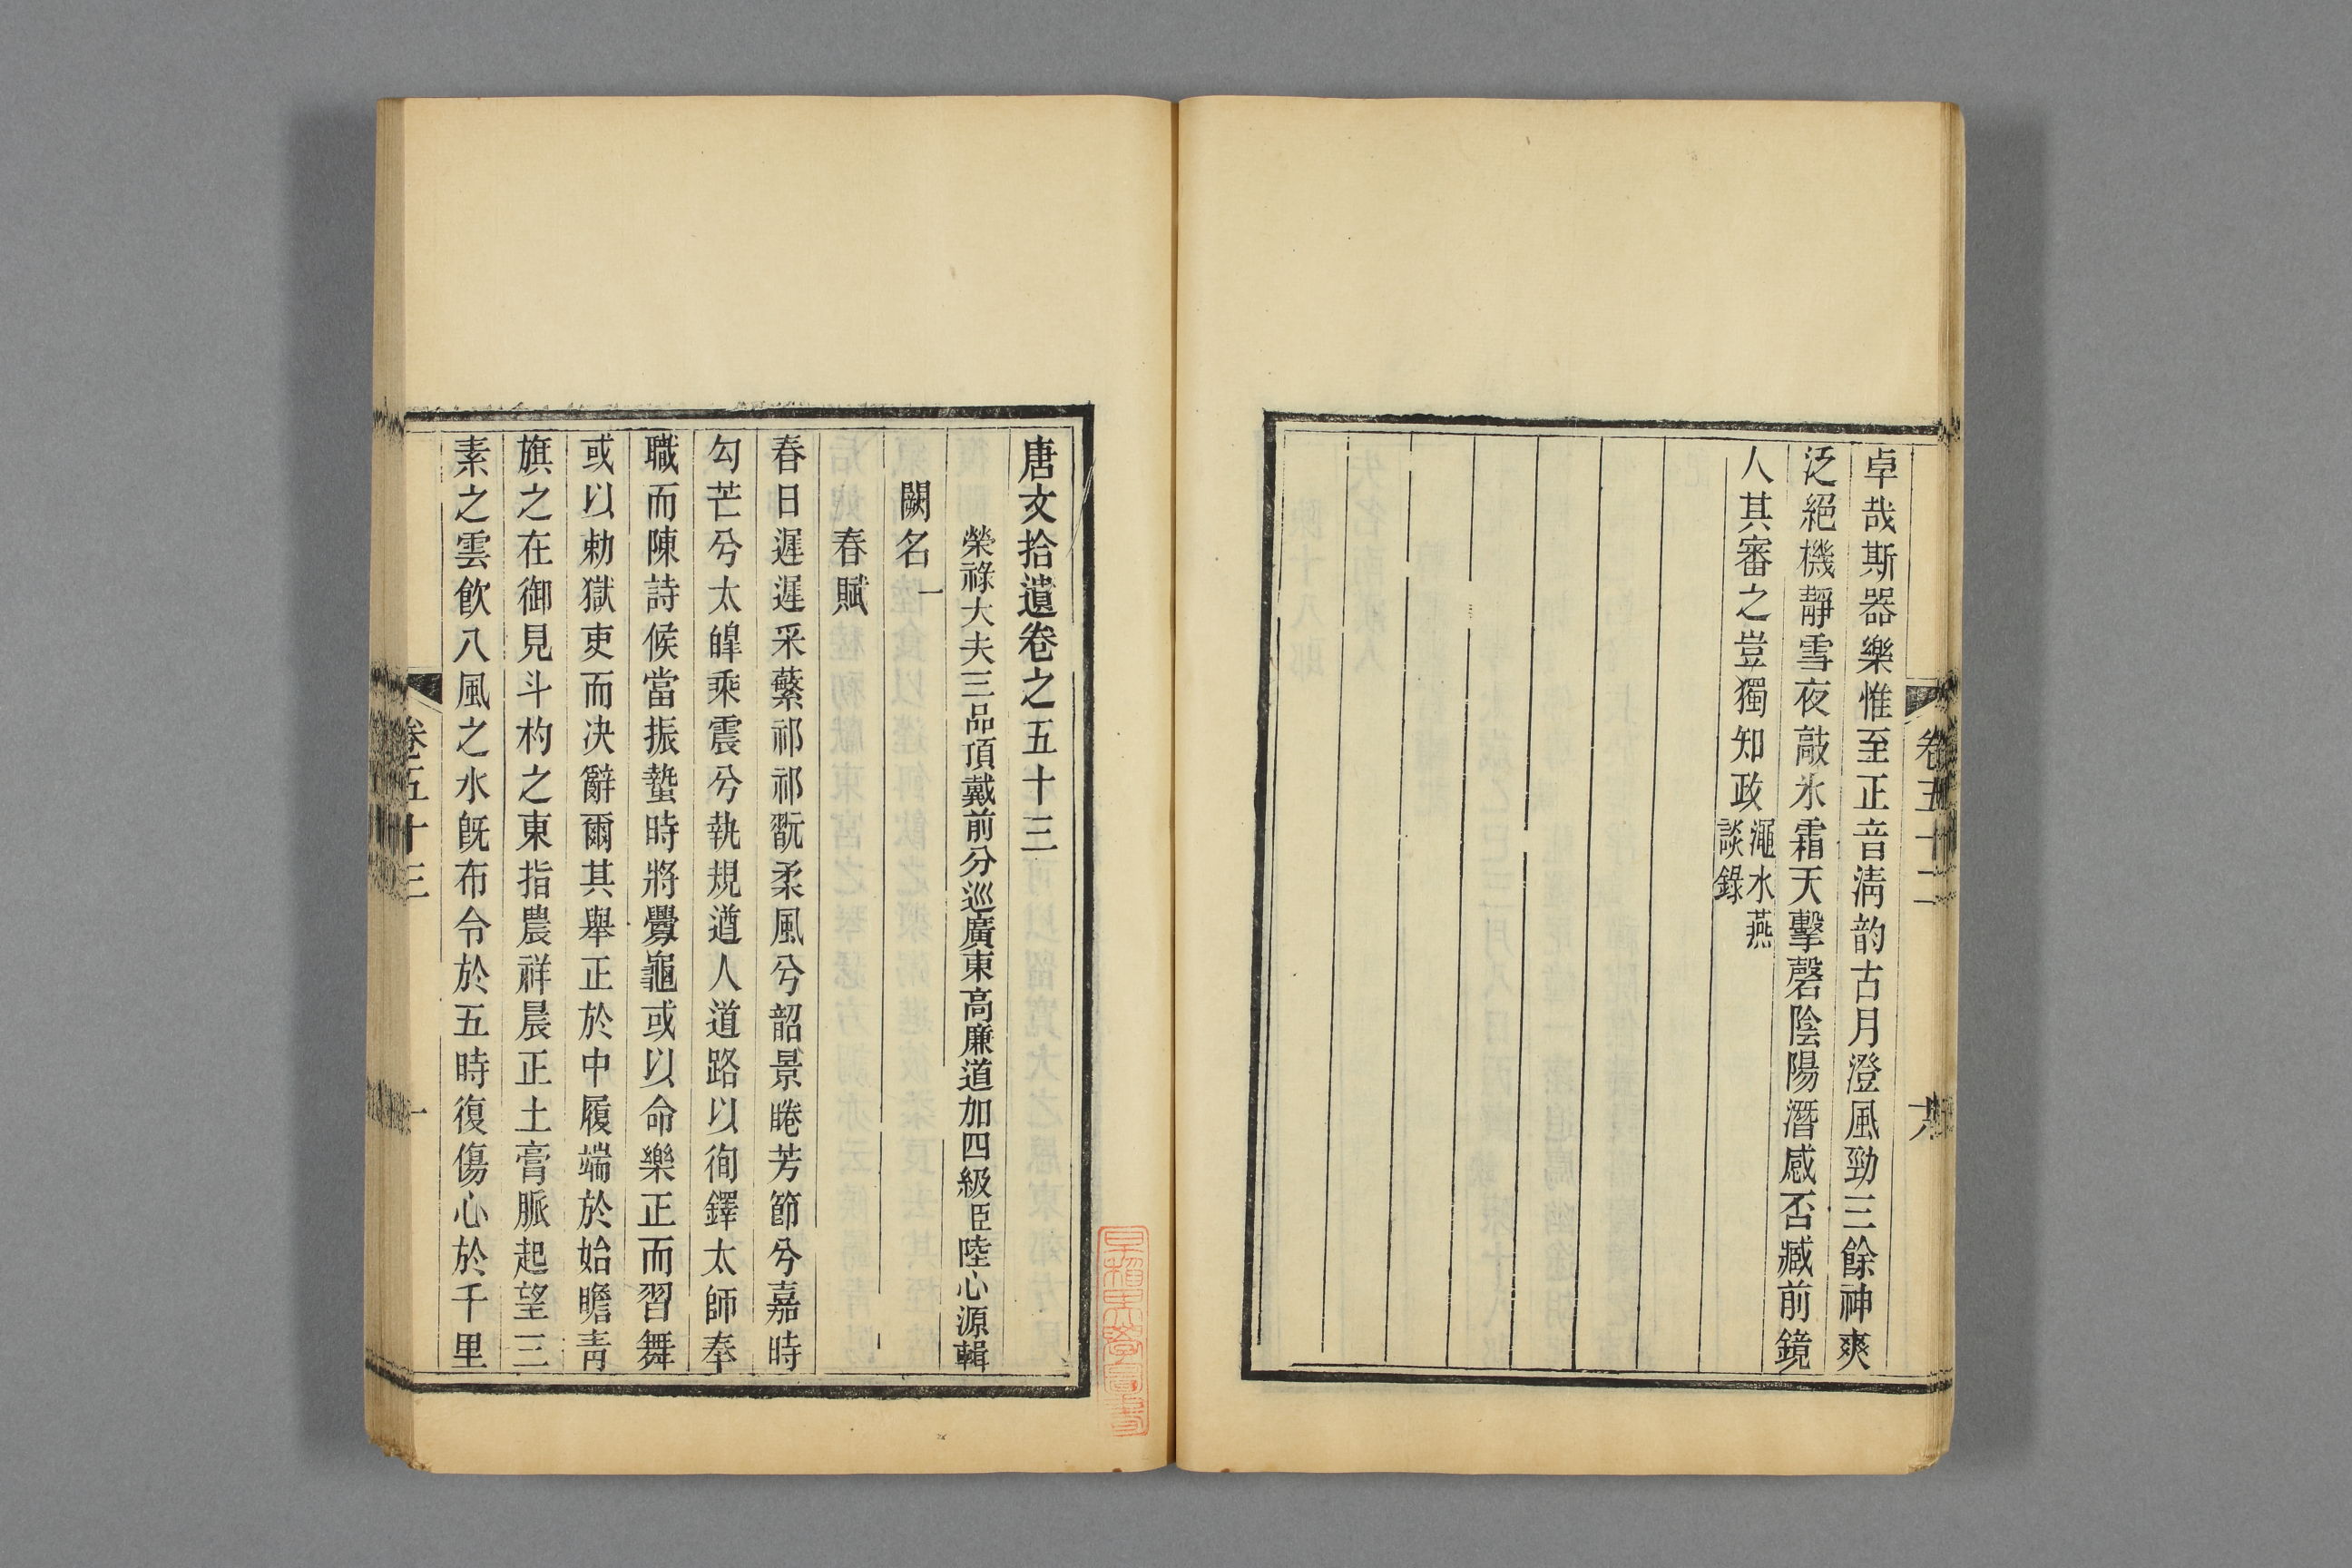 卓哉斯器樂惟至正音淸韵古月澄風勁三餘神爽
泛絕機靜雪夜敲氷霜天擊磬陰陽潛感否臧前鏡
人其審之豈獨知政澠水燕
談錄
卷五十二
唐文拾遺卷之五十三
榮祿大夫三品頂戴前分巡廣東高廉道加四級臣陸心源輯
闕名一
春賦
春日遲遲采蘩祁祁翫柔風兮韶景睠芳節兮嘉時
勾芒兮太皞乘震兮執規遒人道路以徇鐸太師奉
職而陳詩候當振蟄時將釁龜或以命樂正而習舞
或以勑獄吏而决辭爾其舉正於中履端於始瞻靑
旗之在御見斗杓之東指農祥晨正土膏脈起望三
素之雲飮八風之水旣布令於五時復傷心於千里
卷五十三
一